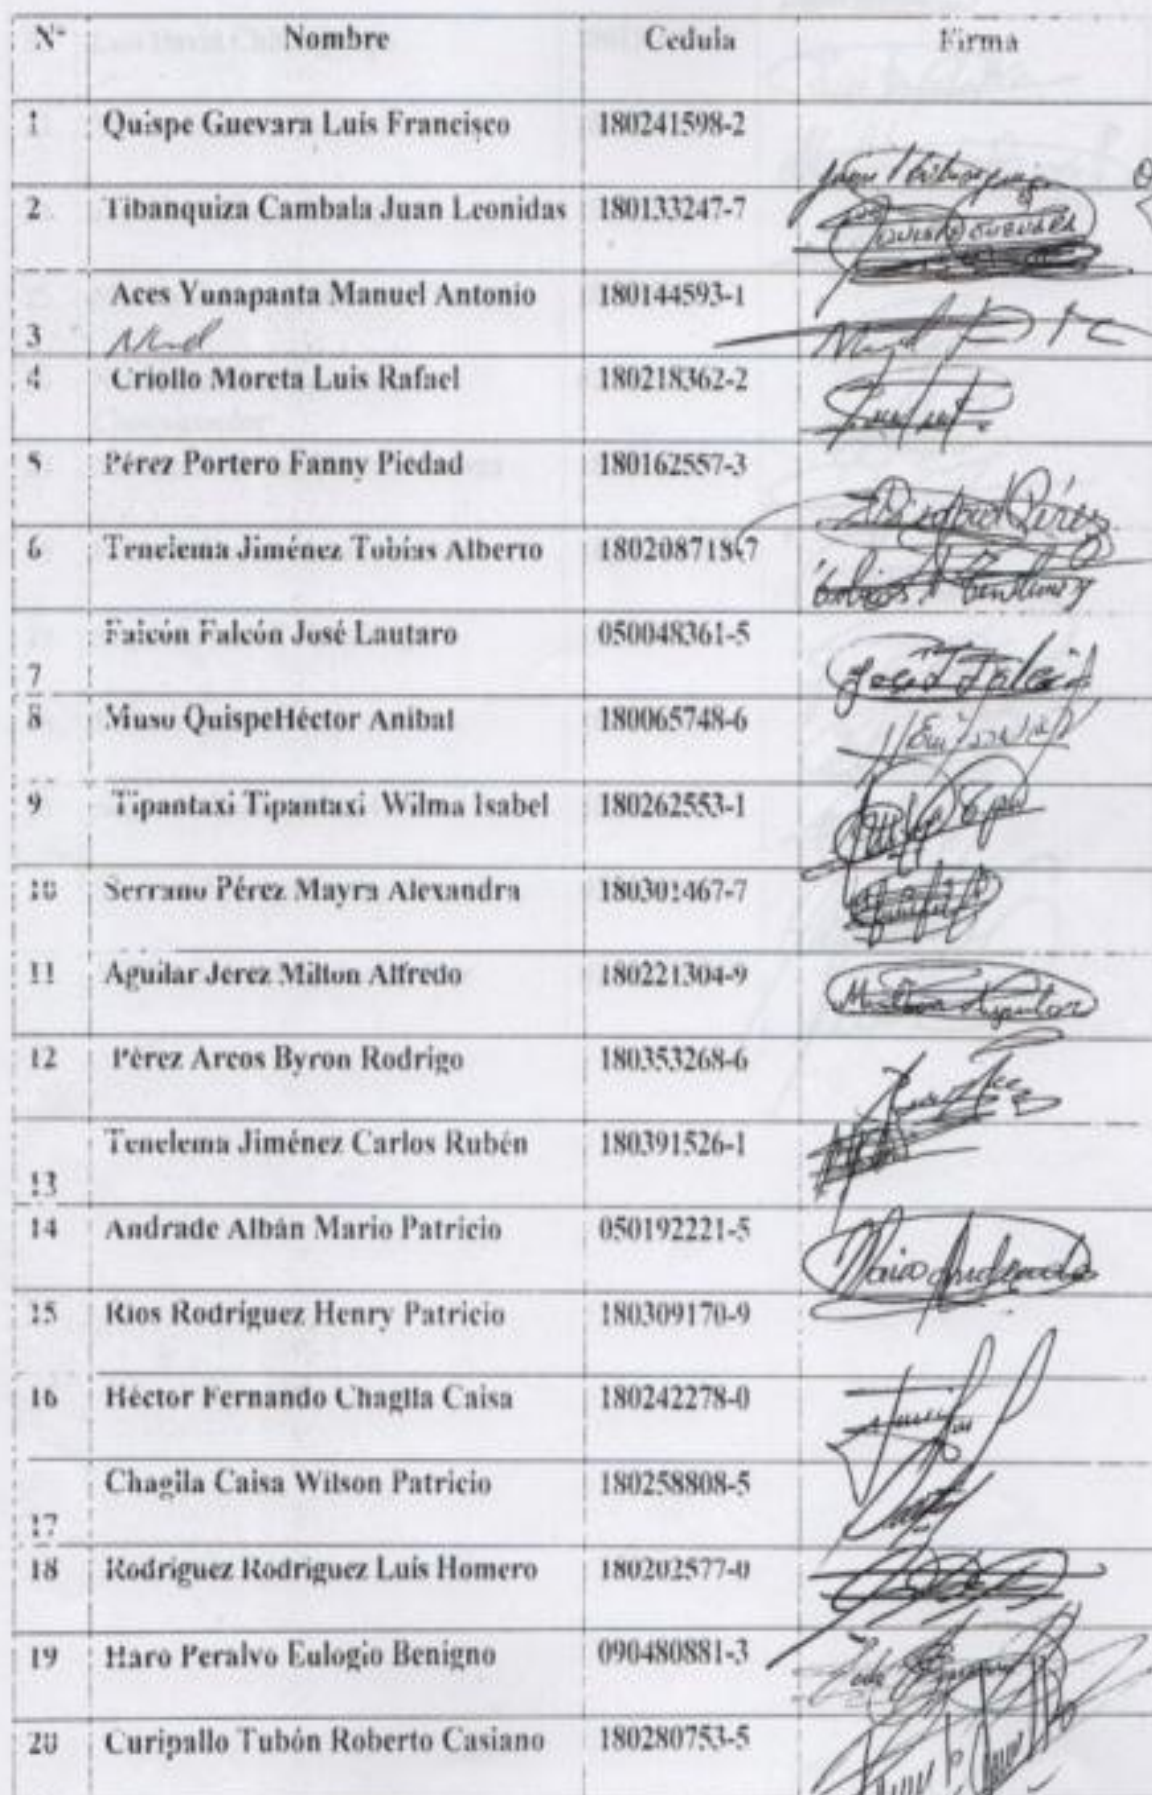 N° Nombre Cedula Firma
1 Quispe Guevara Luis Francisco 180241598-2
2 Tibanquiza Cambala Juan Leonidas 180133247-7
Quispe Guevara
Aces Yunapanta Manuel Antonio 180144593-1
3
4 Criollo Moreta Luis Rafael 180218362-2
5 Pérez Portero Fanny Piedad 180162557-3
Piedad Pérez
6 Tenelema Jiménez Tobías Alberto 180208718-7
Falcón Falcón José Lautaro 050048361-5
7 José Falcón
8 Muso QuispeHéctor Aníbal 180065748-6
9 Tipantaxi Tipantaxi Wilma Isabel 180262553-1
10 Serrano Pérez Mayra Alexandra 180301467-7
11 Aguilar Jerez Milton Alfredo 180221304-9
Milton Aguilar
12 Pérez Arcos Byron Rodrigo 180353268-6
Tenelema Jiménez Carlos Rubén 180391526-1
13
14 Andrade Albán Mario Patricio 050192221-5
Mario Andrade
15 Ríos Rodríguez Henry Patricio 180309170-9
16 Héctor Fernando Chaglla Caisa 180242278-0
Chaglla Caisa Wilson Patricio 180258808-5
17
18 Rodríguez Rodríguez Luis Homero 180202577-0
19 Haro Peralvo Eulogio Benigno 090480881-3
20 Curipallo Tubón Roberto Casiano 180280753-5